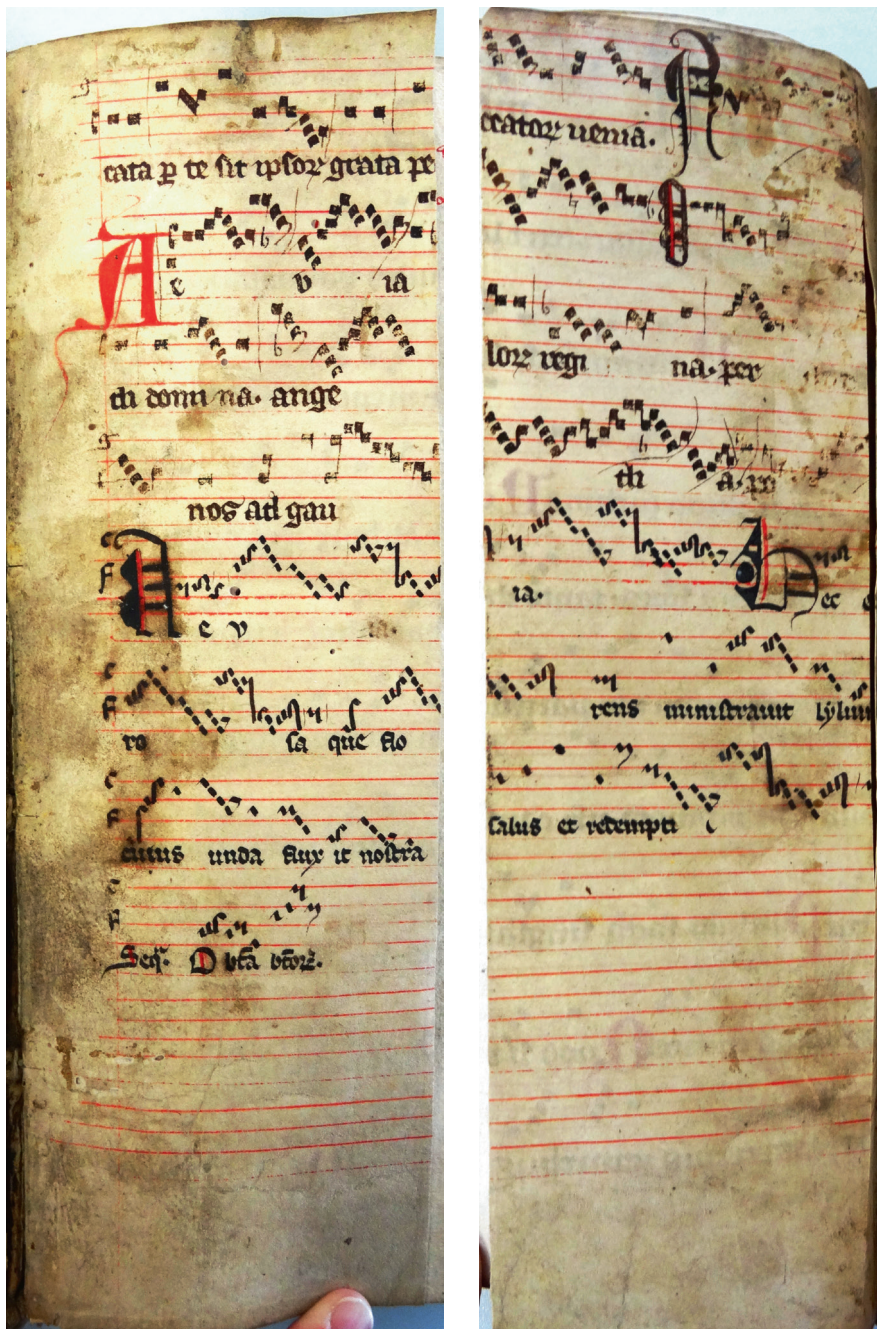 cata ꝑ te sit ipsoꝝ grata pe
A e v ia
cli domi na. ange
nos ad gau
A e v ia.
ro sa que flo
cuius unda flux it nostra
Seq. O bta btoꝝ.
ccatoꝝ uenia. A
O
loꝝ regi na. per
di a. pe
ia. H ec e
rens ministrauit lyliu
salus et redempti